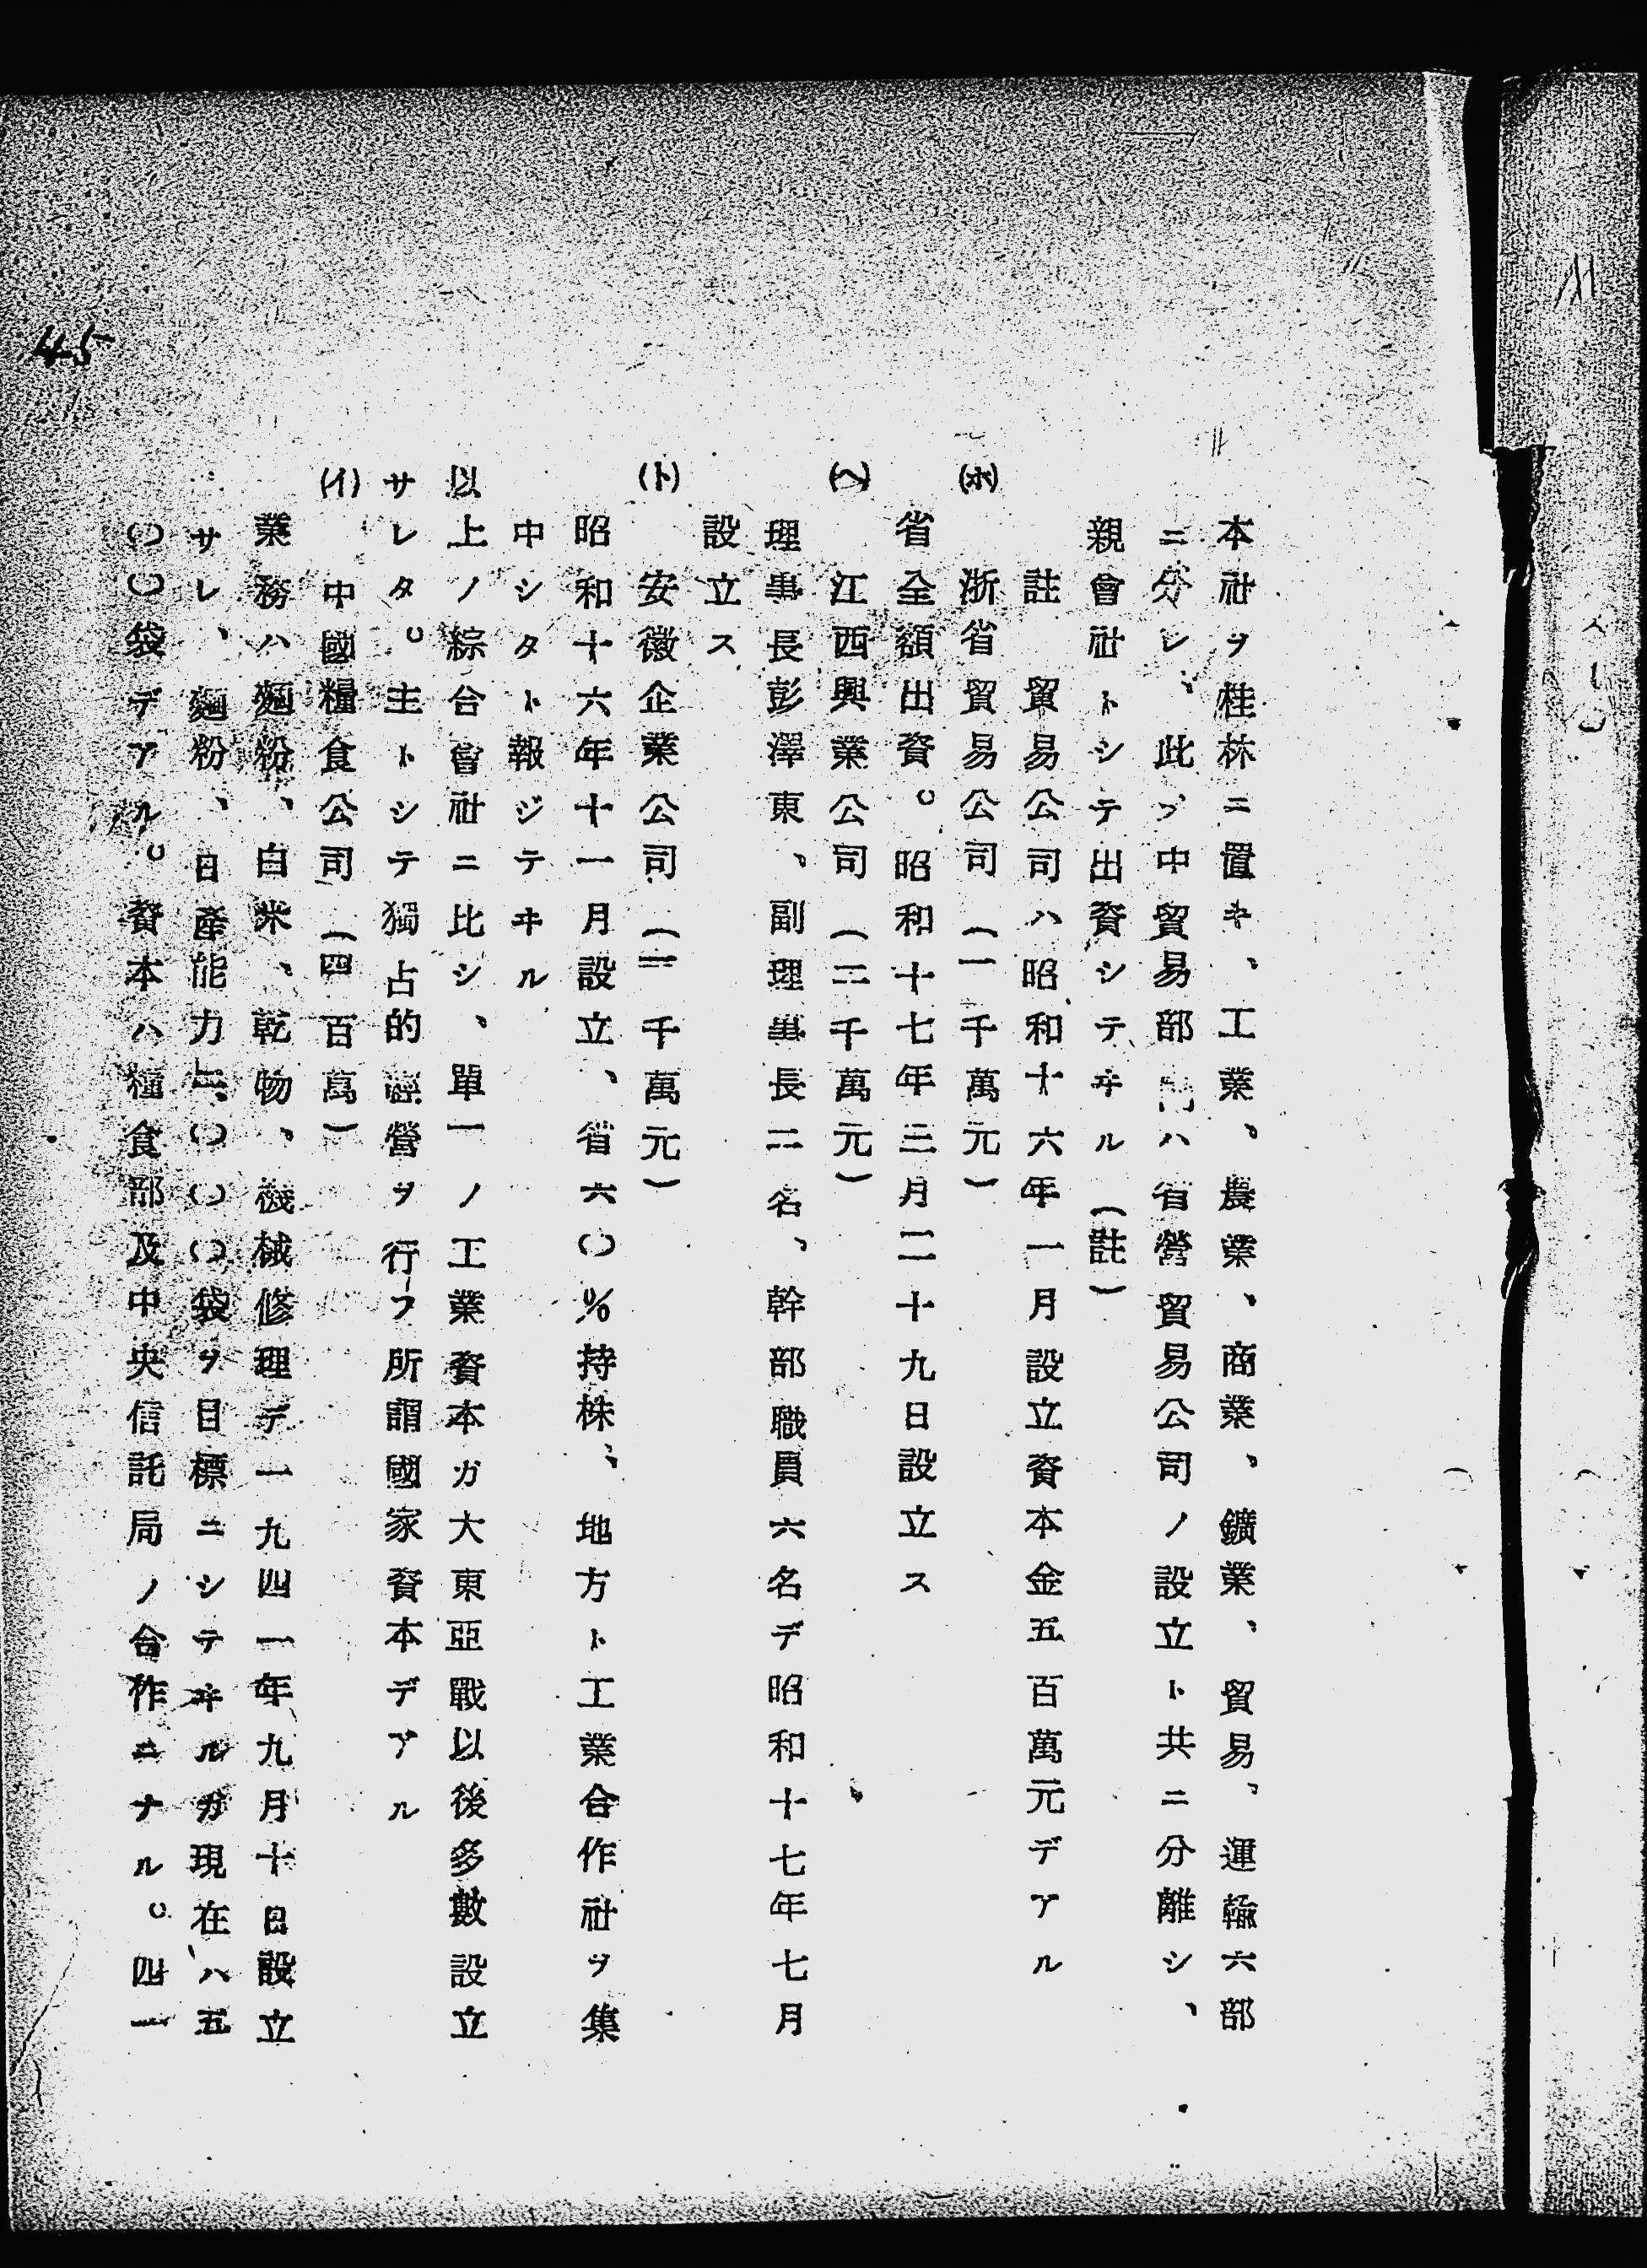 本社ヲ桂林ニ置キ、工業、農業、商業、鑛業、貿易、運輸六部
ニ分レ、此ノ中貿易部門ハ省營貿易公司ノ設立ト共ニ分離シ、
親會社トシテ出資シテヰル（註）
註 貿易公司ハ昭和十六年一月設立資本金五百萬元デアル
(ホ) 浙省貿易公司（一千萬元）
省全額出資。昭和十七年三月二十九日設立ス
(ヘ) 江西興業公司（二千萬元）
理事長彭澤東、副理事長二名、幹部職員六名デ昭和十七年七月
設立ス
(ト) 安徽企業公司（千萬元）
昭和十六年十一月設立、省六〇％持株、地方ト工業合作社ヲ集
中シタト報ジテヰル
以上ノ綜合會社ニ比シ、單一ノ工業資本ガ大東亞戰以後多數設立
サレタ。主トシテ獨占的經營ヲ行フ所謂國家資本デアル
(イ) 中國糧食公司（四百萬）
業務ハ麺粉、白米、乾物、機械修理デ一九四一年九月十日設立
サレ、麺粉、日産能力〇〇〇袋ヲ目標ニシテヰルガ現在ハ五
〇〇袋デアル。資本ハ糧食部及中央信託局ノ合作ニナル。四一
45